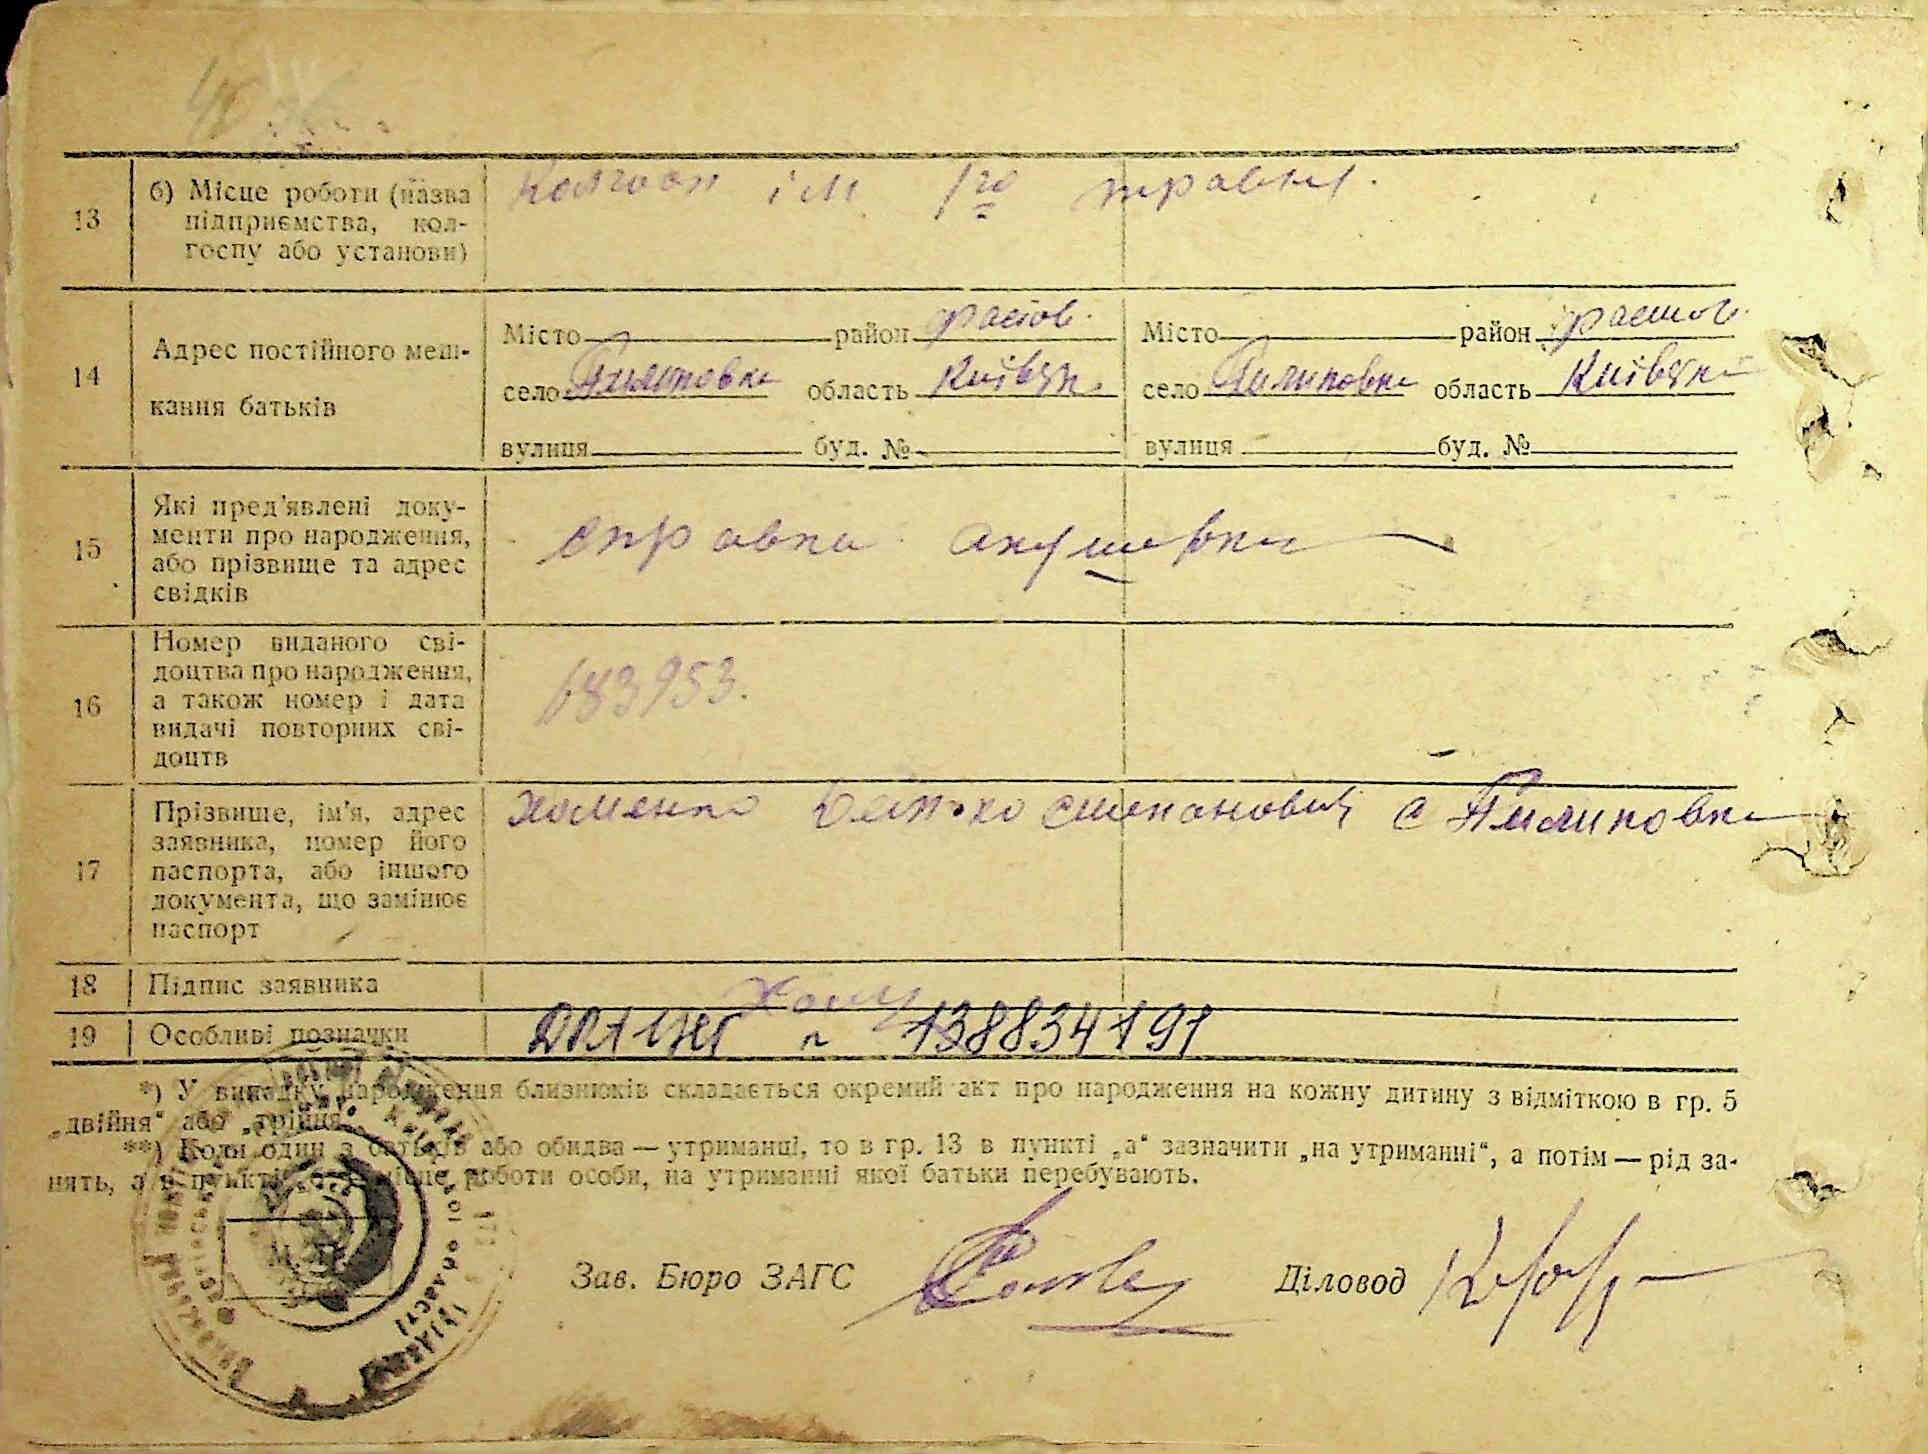 13
б) Місце роботи (назва
підприємства, кол-
госпу або установи)
Колгосп ім 1го травня.
14
Адрес постійного меш-
кання батьків
Місто район Фастов.
село Пилиповка область Київськ.
вулиця буд. №
Місто район Фастов.
село Пилиповка область Київськ
вулиця буд. №
15
Які пред'явлені доку-
менти про народження,
або прізвище та адрес
свідків
справка акушерки
16
Номер виданого сві-
доцтва про народження,
а також номер і дата
видачі повторних сві-
доцтв
683953.
17
Прізвище, ім'я, адрес
заявника, номер його
паспорта, або іншого
документа, що замінює
паспорт
Хоменко степанович с Пилиповка
18
Підпис заявника
Хому
19
Особливі позначки
ДРАЦСГ 138834191
*) У випадку народження близнюків складається окремий акт про народження на кожну дитину з відміткою в гр. 5
„двійня“ або „трійня“.
**) Коли один з батьків або обидва — утриманці, то в гр. 13 в пункті „а“ зазначити „на утриманні“, а потім — рід за-
нять, а в пункті „б“ місце роботи особи, на утриманні якої батьки перебувають.
М. П.
Зав. Бюро ЗАГС
Діловод